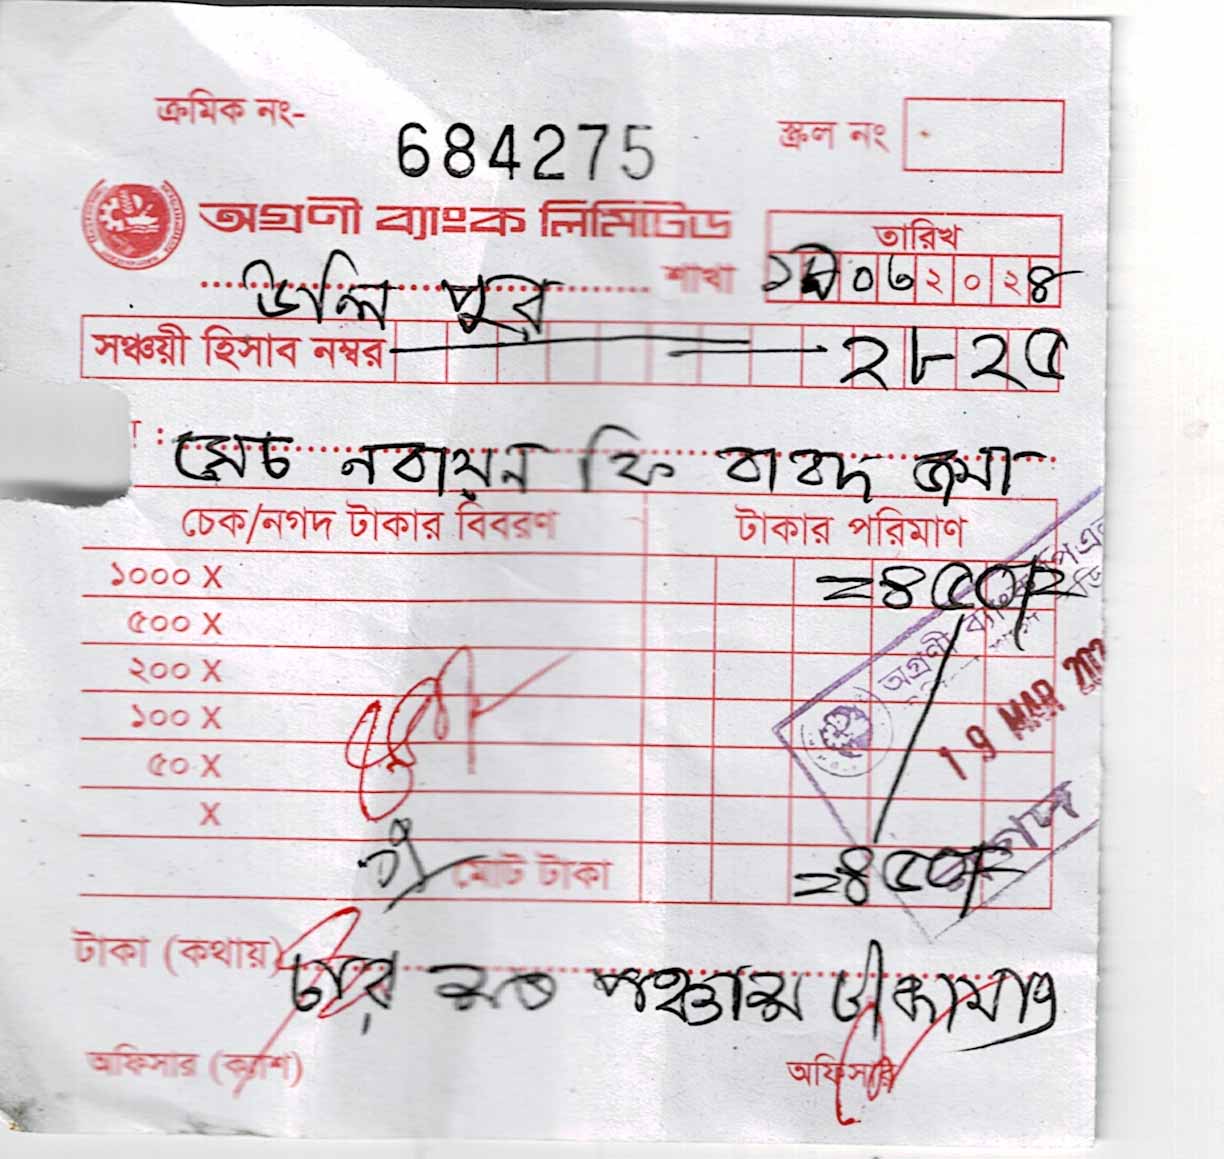 ক্রমিক নং-
684275
স্ক্রল নং
অগ্রণী ব্যাংক লিমিটেড
তারিখ
উলিপুর শাখা
০৩২০২৪
সঞ্চয়ী হিসাব নম্বর ২৮২৫
সেচ নবায়ন ফি বাবদ জমা
চেক/নগদ টাকার বিবরণ টাকার পরিমাণ
১০০০ X =৪৫০/=
৫০০ X
২০০ X
১০০ X
৫০ X
X
মোট টাকা =৪৫০/=
অগ্রণী ব্যাংক পিএল
19 MAR 202
নগদ
টাকা (কথায়) চার শত পঞ্চাশ টাকা মাত্র
অফিসার (ক্যাশ) অফিসার